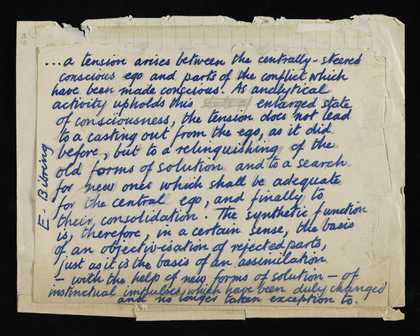 ...a tension arises between the centrally-steered
conscious ego and parts of the conflict which
have been made conscious. As analytical
activity upholds this enlarged state
of consciousness, the tension does not lead
to a casting out from the ego, as it did
before, but to a relinquishing of the
old forms of solution and to a search
for new ones which shall be adequate
for the central ego, and finally to
their consolidation. The synthetic function
is, therefore, in a certain sense, the basis
of an objectivisation of rejected parts,
just as it is the basis of an assimilation
– with the help of new forms of solution – of
instinctual impulses which have been duly changed
and no longer taken exception to.
E. Bibring